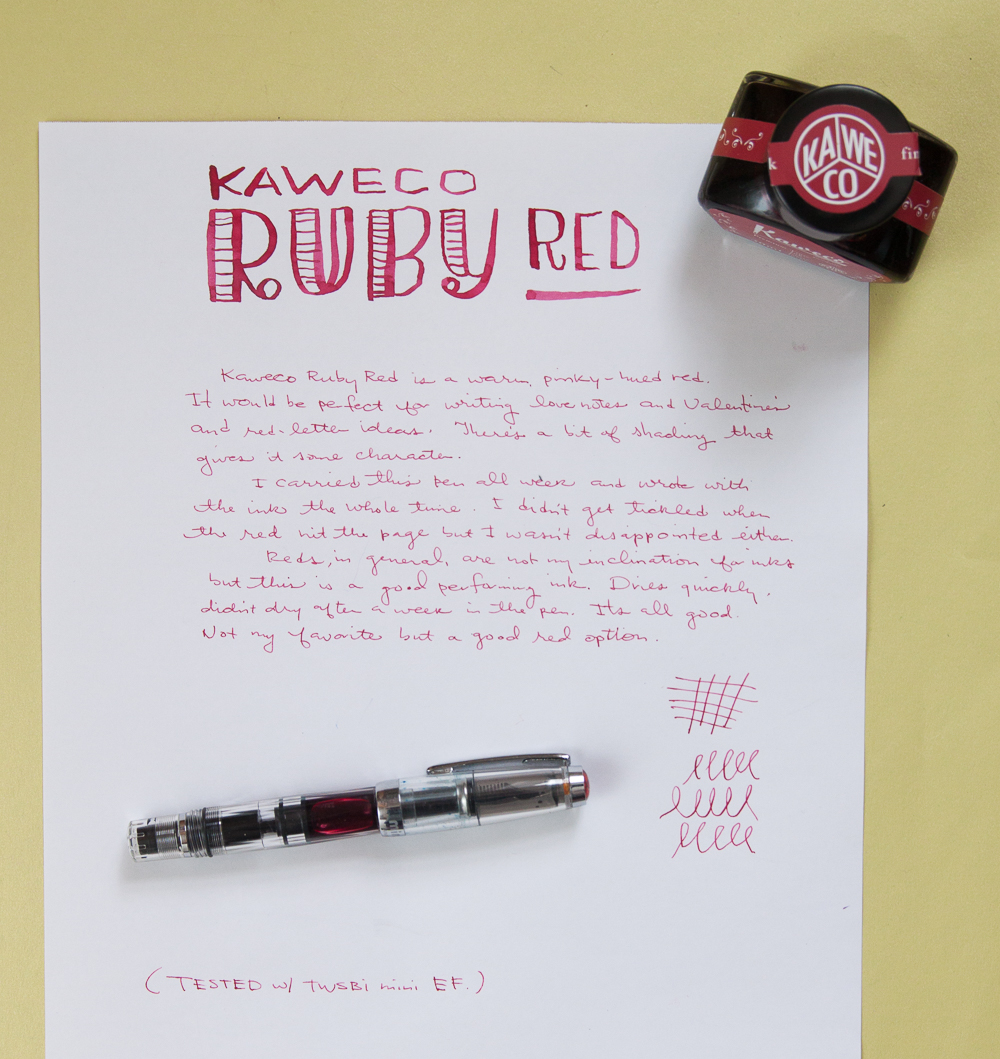 KAWECO
RUBY RED
KAWECO
k
fin
Kaweco
Kaweco Ruby Red is a warm, pinky-hued red.
It would be perfect for writing love notes and Valentine's
and red-letter ideas. There's a bit of shading that
gives it some character.
I carried this pen all week and wrote with
the ink the whole time. I didn't get tickled when
the red hit the page but I wasn't disappointed either.
Reds, in general, are not my inclination for inks
but this is a good performing ink. Dries quickly,
didn't dry after a week in the pen. It's all good.
Not my favorite but a good red option.
(TESTED w/ TWSBI mini EF.)